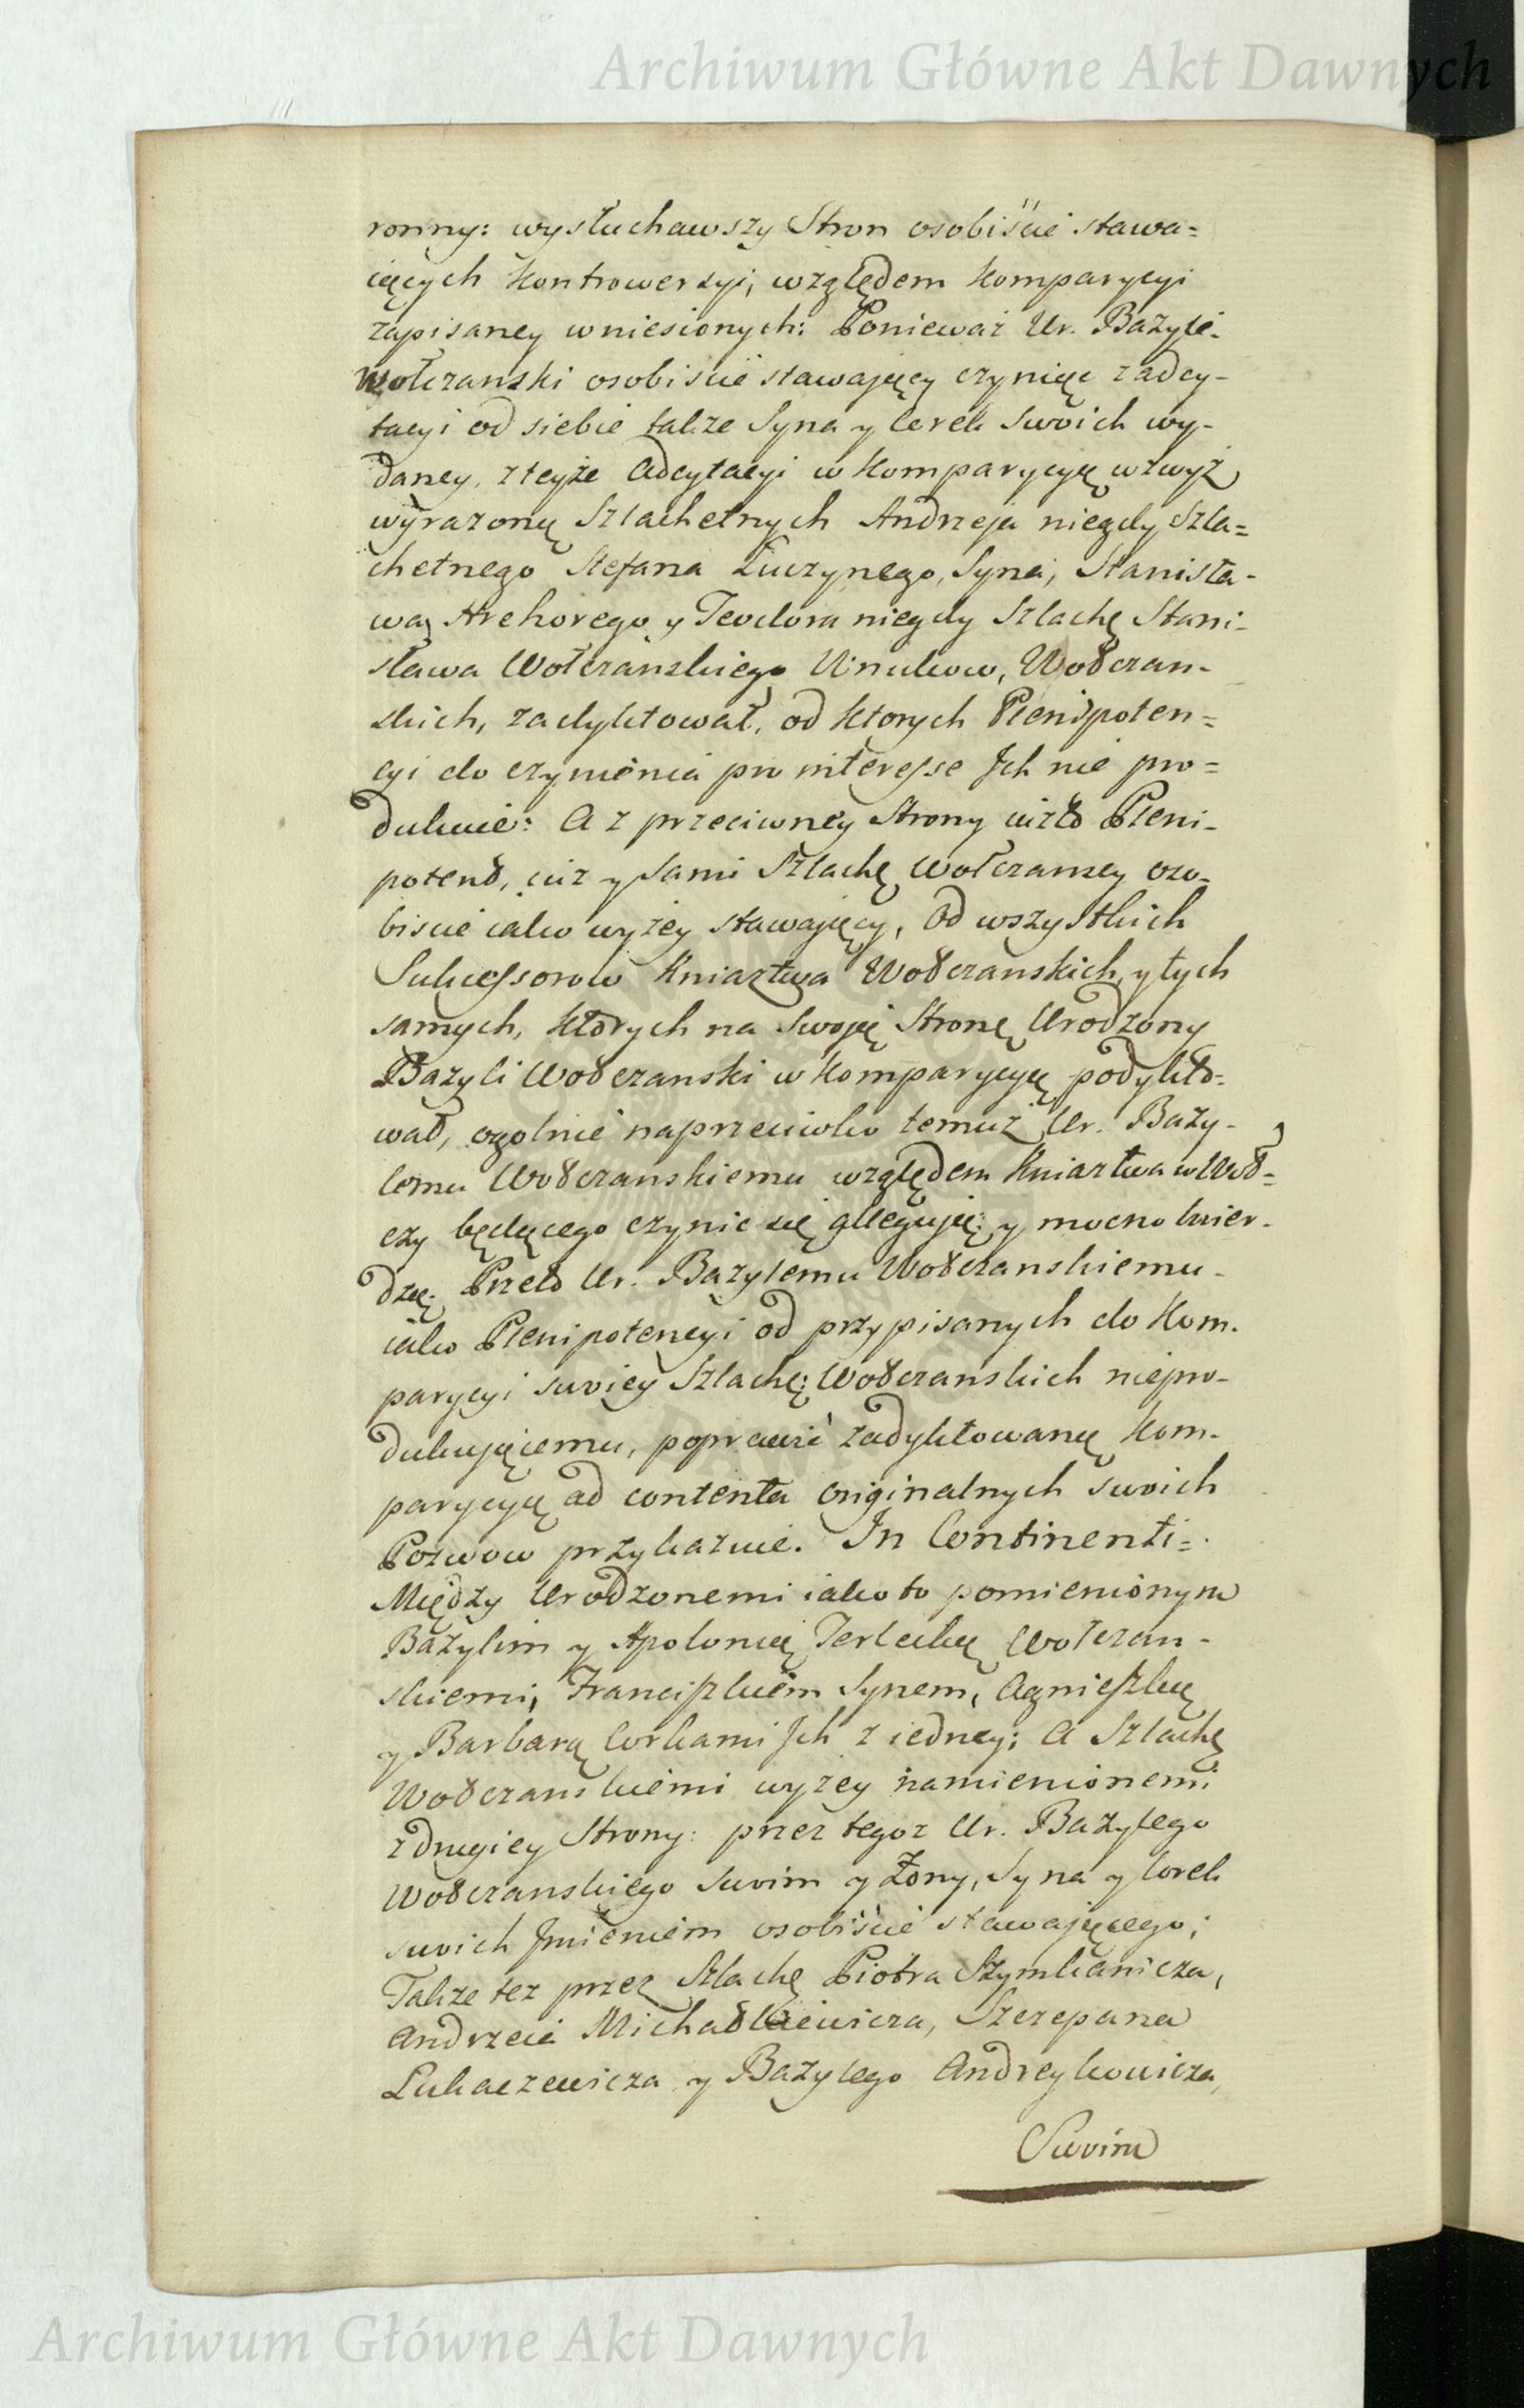 Archiwum Główne Akt Dawnych
ronny: wysłuchawszy Stron osobiście stawa=
iących Kontrowersyi, względem Komparycyi
zapisaney wniesionych: Ponieważ Ur. Bazyli
Wołczanski osobiście stawający czyniąc z adcy-
tacyi od siebie takze Syna y Corek swoich wy-
daney, z teyże Adcytacyi w Komparycyą wzwyż
wyrazoną Szlachetnych Andrzeja niegdy Szla=
chetnego Stefana Syna, Stanisła-
wa, Hrehorego y Teodora niegdy Szlachę Stani-
sława Wołczańskiego Wnukow, Wołczan-
skich, zadyktował, od ktorych Plenipoten=
cyi do czynienia pro interesse Ich nie pro=
dukuie: A z przeciwney Strony iużto Pleni-
potent, iuż y sami Szlachę Wołczanscy oso-
biscie iako wyżey stawający, od wszystkich
Sukcessorow Kniaztwa Wołczanskich, y tych
samych, ktorych na swoię Stronę Urodzony
Bazyli Wołczanski w Komparycyę podykto=
wał, ogolnie naprzeciwko temuż Ur. Bazy-
lemu Wołczanskiemu względem Kniaztwa w Woł=
czy będącego czynic się alleguią; y mocno twier-
dzą; Przeto Ur. Bazylemu Wołczanskiemu-
iako Plenipotencyi od przypisanych do Kom-
parycyi swoiey Szlachę: Wołczanskich niepro-
dukującemu, poprawić zadyktowaną Kom-
parycyę ad contenta originalnych swoich
Pozwow przykazuie. In Continenti=
Między Urodzonemi iako to pomienionym
Bazylim y Apolonią Terlecką Wołczan-
skiemi, Franciszkiem Synem, Agnieszką
y Barbarą Corkami Ich z iedney; A Szlachę
Wołczanskiemi wyżey namienionemi
z drugiey Strony: przez tegoż Ur. Bazylego
Wołczanskiego swoim y Żony, Syna y Corek
swoich Imieniem osobiście stawającego;
Takze tez przez Szlachę Piotra Szymkanicza,
Andrzeia Michałkiewicza, Szczepana
Lukaczewicza y Bazylego Andreykowicza,
Swoim
Archiwum Główne Akt Dawnych